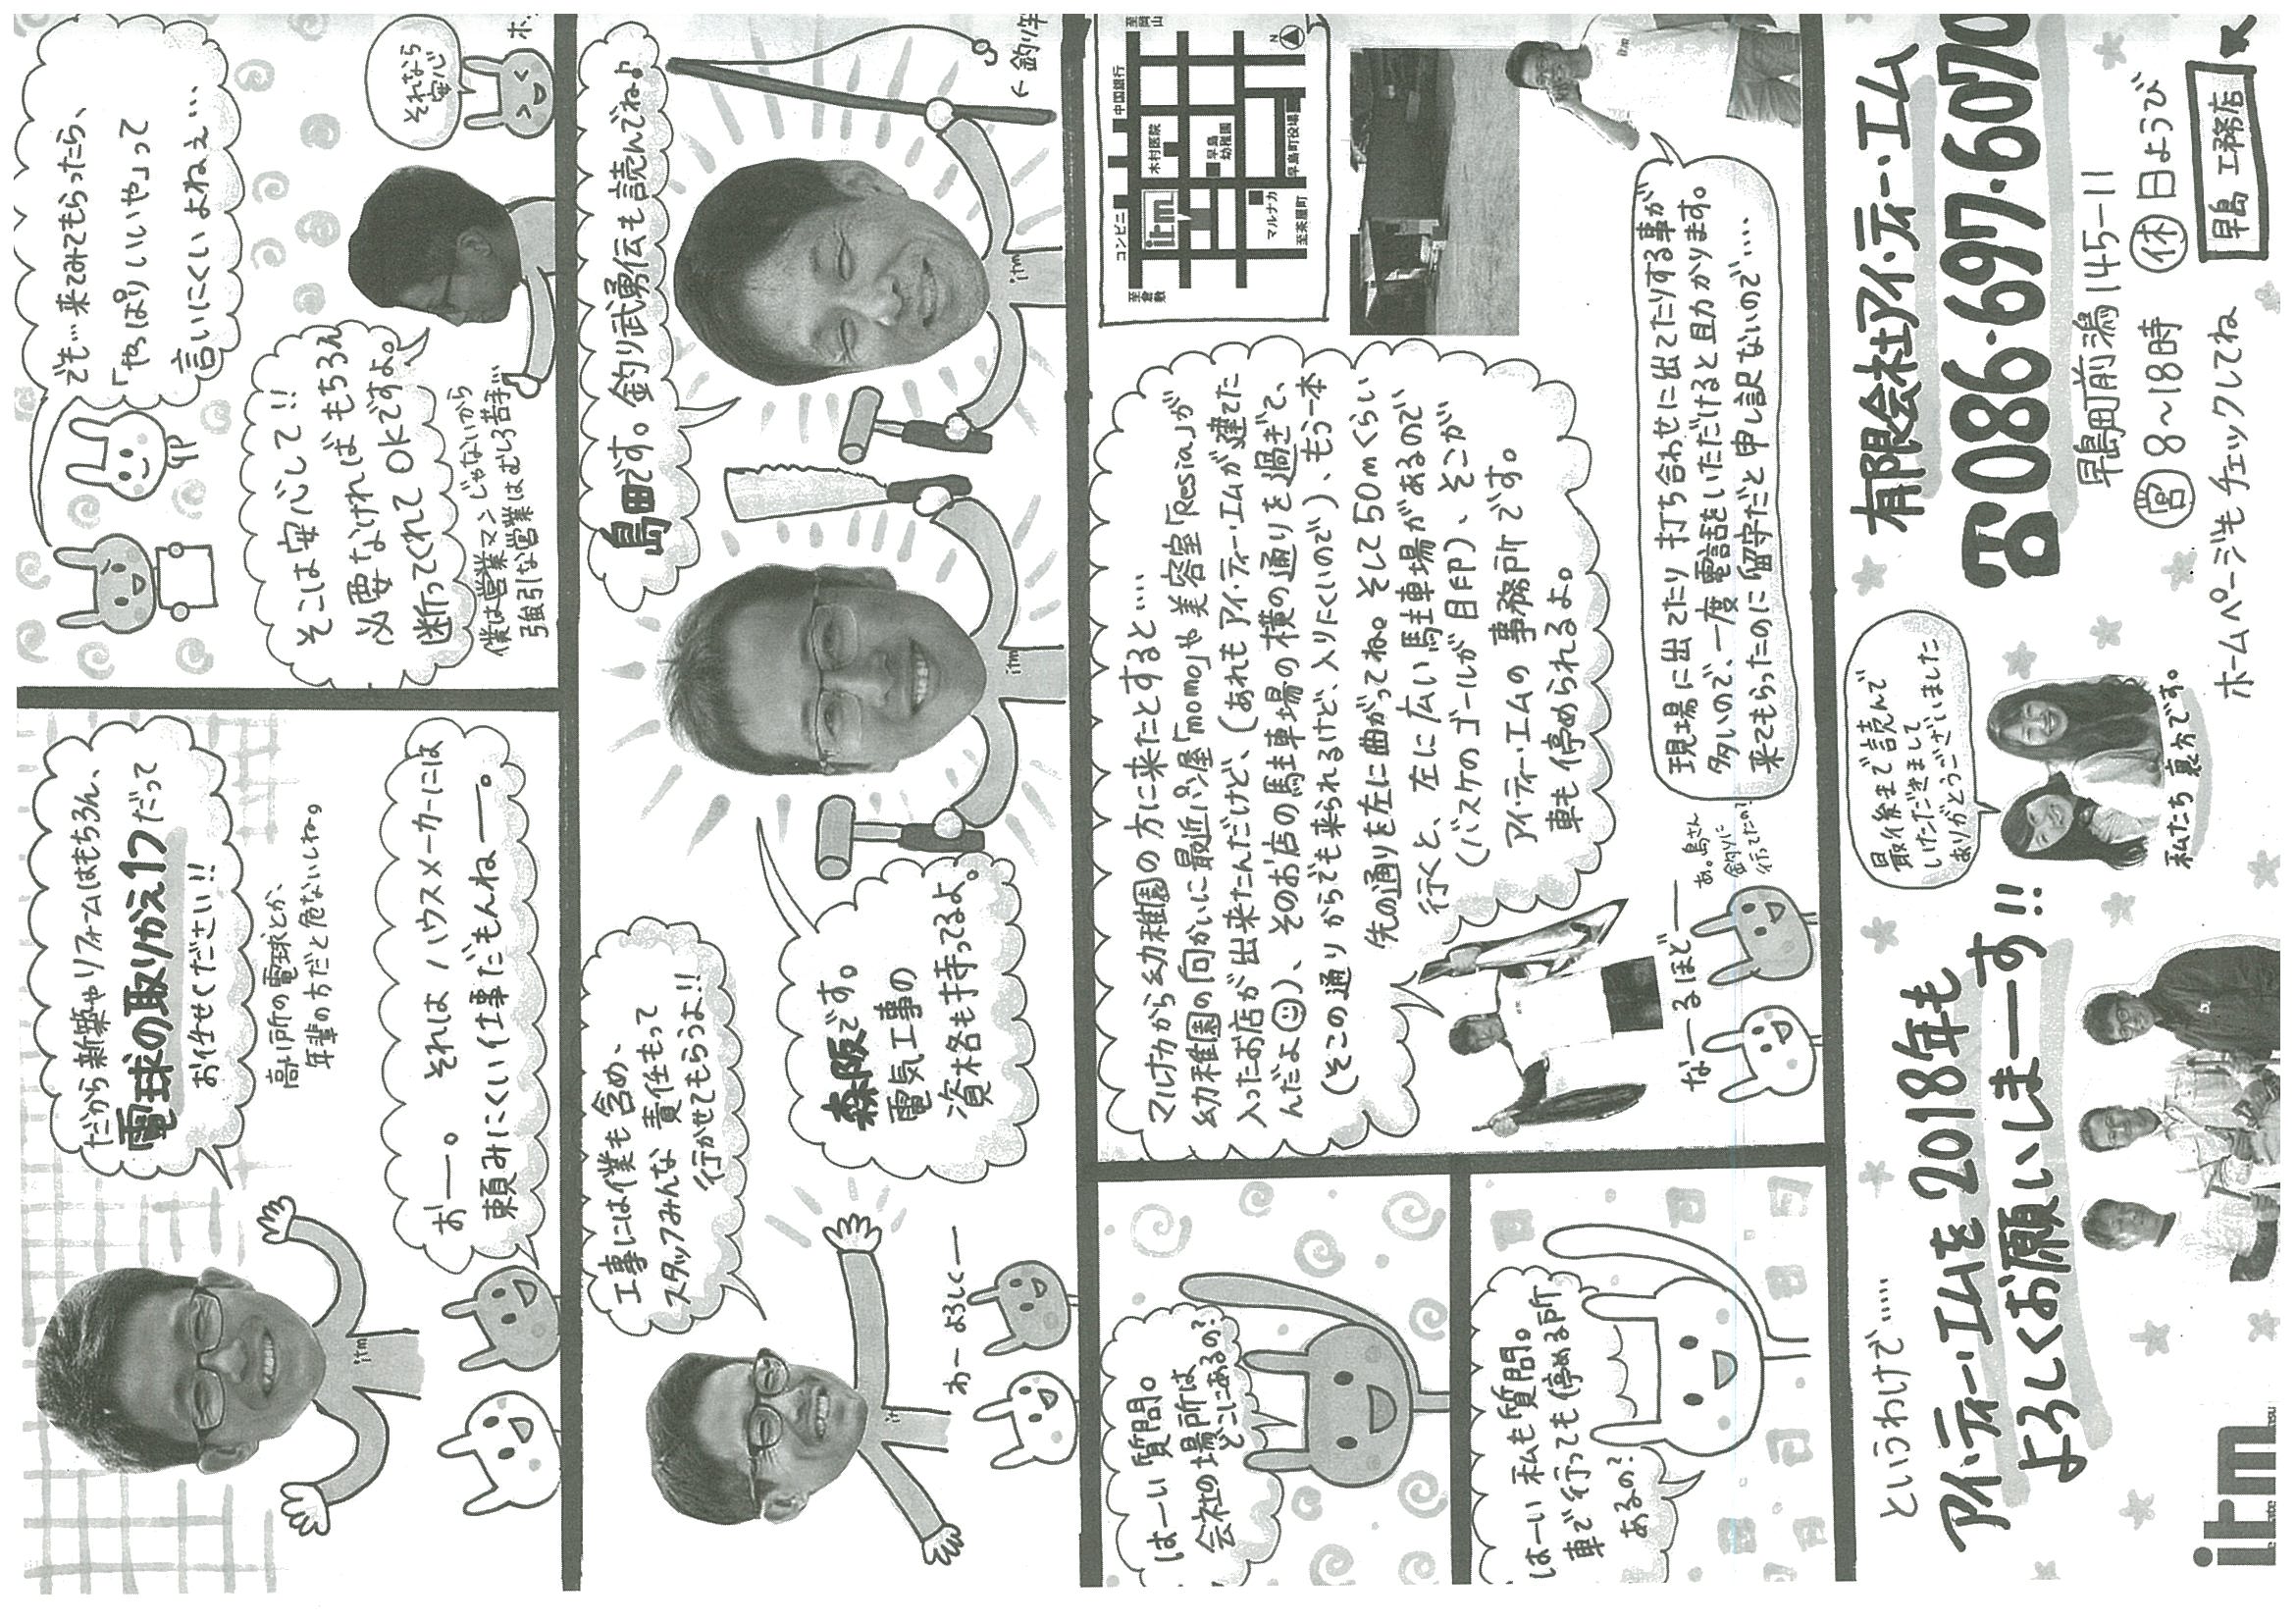 だから新築やリフォームはもちろん、
電球の取りかえ1つだって
お任せください!!
高い所の電球とか、
年輩の方だと危ないしね。
おー。それはハウスメーカーには
頼みにくい仕事だもんねー。
itm
でも…来てみてもらったら、
「やっぱりいいや」って
言いにくいよねぇ…
そこは安心して!!
必要なければもちろん
断ってくれてOKですよ。
僕は営業マンじゃないから
強引な営業はむしろ苦手…
それなら
安心
ホ…
工事には僕も含め、
スタッフみんな責任もって
行かせてもらうよ!!
わーよろしくー
森阪です。
電気工事の
資格も持ってるよ。
itm
島田です。釣り武勇伝も読んでね♪
itm
←釣り竿
はーい質問。
会社の場所は
どこにあるの?
はーい私も質問。
車で行っても停める所
あるの?
マルナカから幼稚園の方に来たとすると…
幼稚園の向かいに最近パン屋「momo」や美容室「Resia」が
入ったお店が出来たんだけど、(あれもアイ・ティー・エムが建てた
んだよ)、そのお店の駐車場の横の通りを過ぎて、
(そこの通りからでも来られるけど、入りにくいので)、もう一本
先の通りを左に曲がってね。そして50mくらい
行くと、左に広い駐車場があるので
(バスケのゴールが目印)、そこが
アイ・ティー・エムの事務所です。
車も停められるよ。
至岡山
中国銀行
木村医院
早島
幼稚園
早島町役場
コンビニ
itm
マルナカ
至茶屋町
至倉敷
N
なーるほどー
あ。島さん
釣りに
行ってたの?
現場に出てたり打ち合わせに出てたりする事が
多いので、一度電話をいただけると助かります。
来てもらったのに留守だと申し訳ないので…
itm
というわけで……
アイ・ティー・エムを2018年も
よろしくお願いしまーす!!
itm
最後まで読んで
いただきまして
ありがとうございました
私たち裏方です。
有限会社アイ・ティー・エム
☎086・697・6070
早島町前潟145-11
営8~18時 休日ようび
ホームページもチェックしてね
早島 工務店